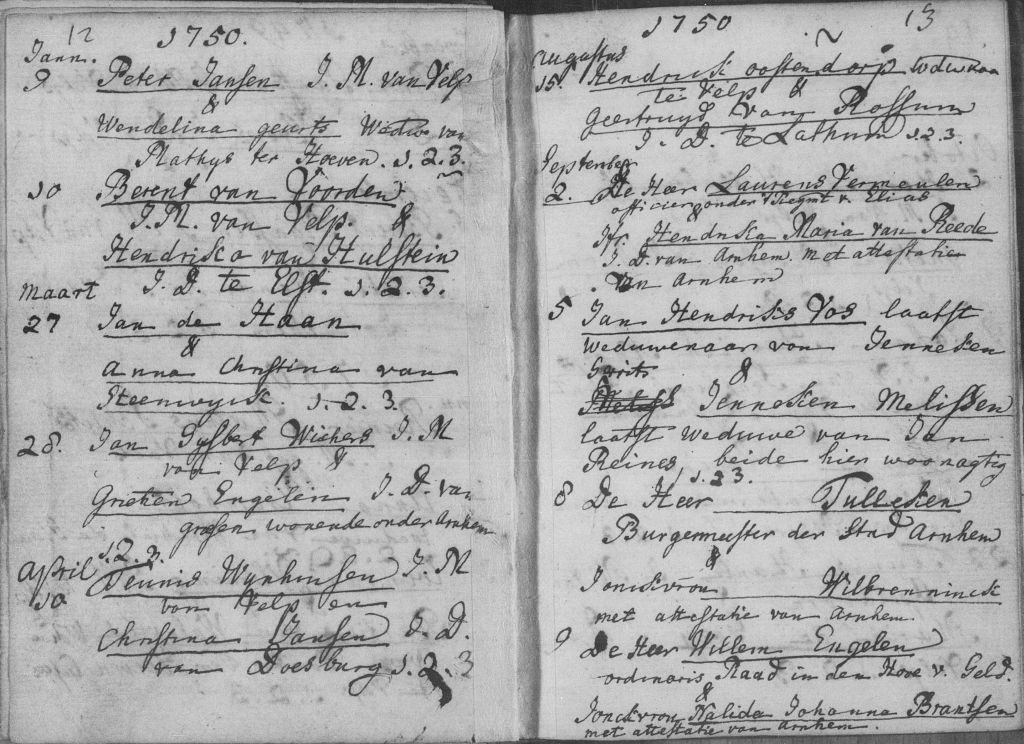 12
1750.
Jann.
9 Peter Jansen J. M. van Velp
&
Wendelina geurts Wedwe van
Mathys ter Hoeven. 1. 2. 3.
10 Berent van Voorden
J. M. van Velp. &
Hendriska van Hulstein
J. D. te Elst. 1. 2. 3.
Maart
27 Jan de Haan
&
Anna Christina van
Steenwyck. 1. 2. 3.
28. Jan Gysbert Wichers J. M
van Velp &
Grietien Engelen J. D. van
wonende onder Arnhem
1. 2. 3.
April
10 Teunis Wynhensen J. M
van Velp en
Christina Jansen J. D.
van Doesburg 1. 2. 3
1750
13
Augustus
15. Hendrick oostendorp
te Velp &
Geertruyd van Rossum
J. D. te Lathum 1. 2. 3.
September
2. De Heer Laurens Vermeulen
officier onder t Regmt v. Elias
&
Jfr. Hendriska Maria van Reede
J. D. van Arnhem. met attestatie
van Arnhem
5 Jan Hendriks Vos laatst
Weduwenaar van Jenneken
Gerrits &
Jenneken Melissen
laatst weduwe van Jan
Reines beide hier woonagtig
1. 2 3.
8 De Heer Tulleken
Burgermeester der Stad Arnhem
&
Jonckvrou Wilbrenninck
met attestatie van Arnhem.
9 De Heer Willem Engelen
ordinaris Raad in den Hove v. Geld.
&
Jonckvrou Nalida Johanna Brantsen
met attestatie van Arnhem.